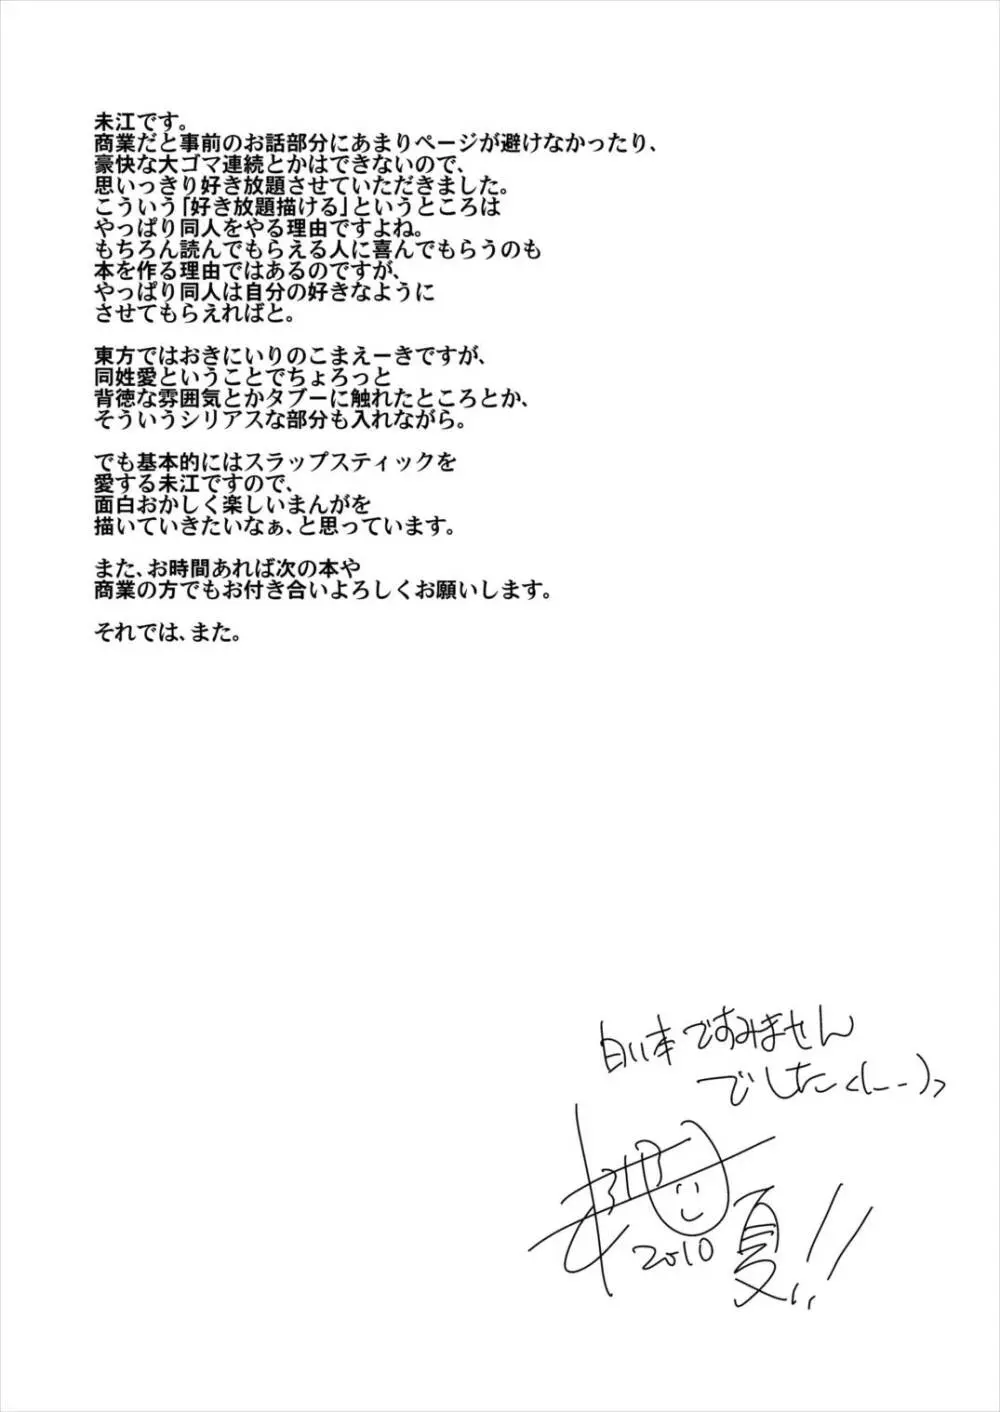 未江です。
商業だと事前のお話部分にあまりページが避けなかったり、
豪快な大ゴマ連続とかはできないので、
思いっきり好き放題させていただきました。
こういう「好き放題描ける」というところは
やっぱり同人をやる理由ですよね。
もちろん読んでもらえる人に喜んでもらうのも
本を作る理由ではあるのですが、
やっぱり同人は自分の好きなように
させてもらえればと。
東方ではおきにいりのこまえーきですが、
同姓愛ということでちょろっと
背徳な雰囲気とかタブーに触れたところとか、
そういうシリアスな部分も入れながら。
でも基本的にはスラップスティックを
愛する未江ですので、
面白おかしく楽しいまんがを
描いていきたいなぁ、と思っています。
また、お時間あれば次の本や
商業の方でもお付き合いよろしくお願いします。
それでは、また。
白い本ですみません
でした<(_ _)>
2010 夏!!